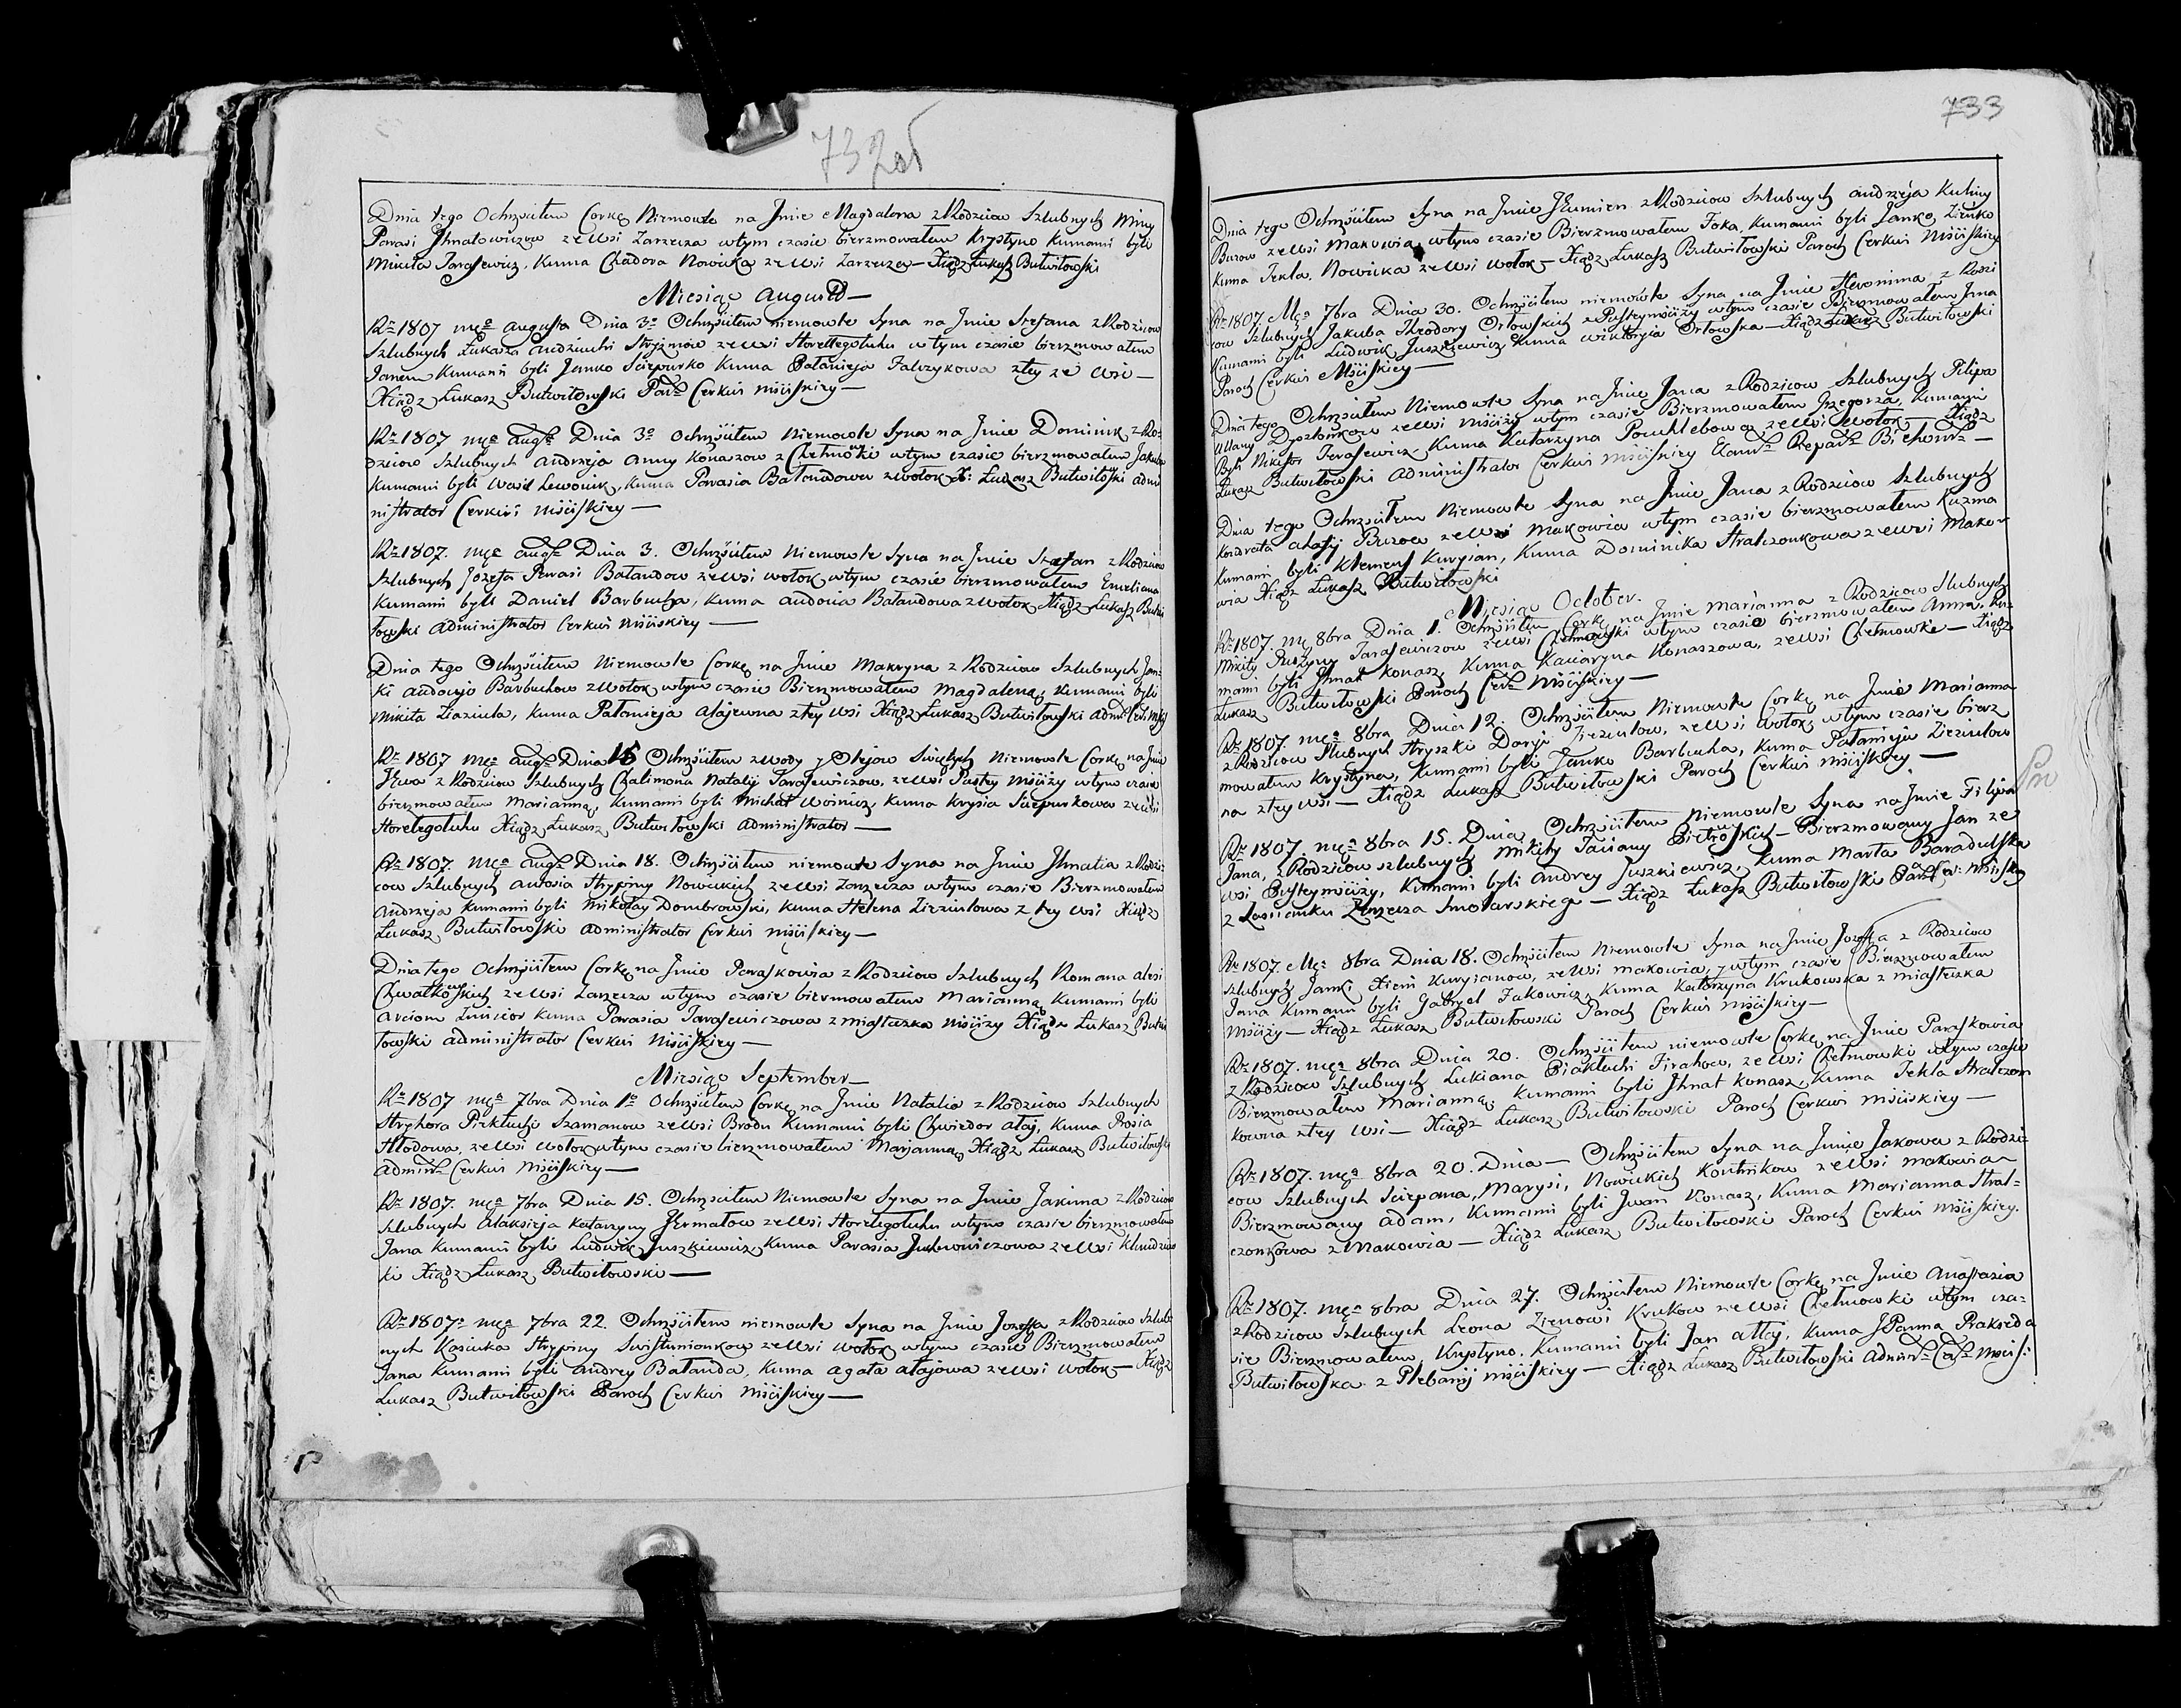 732об
Dnia tego Ochrzciłem Corkę Niemowle na Jmie Magdalena z Rodzicow Szlubnych Miny
Parasi Jhnatowiczow ze Wsi Zarzecza wtym czasie bierzmowałem Krystyno Kumami byli
Mikita Tarasewicz, Kuma Chadora Nowicka ze Wsi Zarzecza — Xiądz Łukasz Butwiłowski
Miesiąc Augusta —
Rº 1807 mcª Augusta Dnia 3º Ochrzciłem niemowle Syna na Jmie Stefana z Rodzicow
Szlubnych Łukasza Audziuchi Stryżniow ze Wsi Horeliegoluhu w tym czasie bierzmowałem
Janem Kumami byli Janko Sciepurko Kuma Pałanieja Falczykowa ztey że Wsi —
Xiądz Łukasz Butwiłowski Parº Cerkwi Mściskiey —
Rº 1807 mcª Augª Dnia 3º Ochrzciłem Niemowle Syna na Jmie Dominik z Ro-
dzicow Szlubnych Andrzeja Anny Konaszow z Chełmowki wtym czasie bierzmowałem Jakuba
Kumami byli Wasil Lewonik, Kuma Parasia Bałandowa z Wołok X: Łukasz Butwiłoski Admi
nistrator Cerkwi Mściskiey —
Rº 1807. mcª Augª Dnia 3. Ochrzciłem Niemowle Syna na Jmie Szczefan z Rodzicow
Szlubnych Jozefa Parasi Bałandow ze Wsi Wołok wtym czasie bierzmowałem Emeliana
Kumami byli Daniel Barbucha, Kuma Audocia Bałandowa z Wołok Xiądz Łukasz Butwi
łowski Administrator Cerkwi Mściskiey —
Dnia tego Ochrzciłem Niemowle Corkę na Jmie Makryna z Rodzicow Szlubnych Jan-
ki Audocyi Barbuchow z Wołok wtym czasie Bierzmowałem Magdaleną, Kumami byli
Mikita Ziaziula, Kuma Pałanieja Ałajewna ztey Wsi Xiądz Łukasz Butwiłowski
Rº 1807 mcª Augª Dnia 15 Ochrzciłem z wody y Olejow Swiętych Niemowle Corkę na Jmie
Ewa z Rodzicow Szlubnych Chalimona Natalij Tarasewiczow, ze Wsi Pustey Mściży wtym czasie
bierzmowałem Marianną, Kumami byli Michał Woinicz, Kuma Krysia Sciepurkowa ze Wsi
Horeliegoluhu Xiądz Łukasz Butwiłowski Administrator —
Rº 1807. mcª Augª Dnia 18. Ochrzciłem niemowle Syna na Jmie Jhnatia z Rodzi-
cow Szlubnych Hrypiny Nowickich ze Wsi Zarzecza wtym czasie Bierzmowałem
Andrzeja Kumami byli Mikołay Dombrowski, Kuma Helena Zieziulowa z tey Wsi Xiądz
Łukasz Butwiłowski Administrator Cerkwi Mściskiey —
Dnia tego Ochrzciłem Corkę na Jmie Paraskowia z Rodzicow Szlubnych Romana Alesi
Chwałkowskich ze Wsi Zarzecza wtym czasie bierzmowałem Marianną Kumami byli
Arciom Kuma Parasia Tarasewiczowa z miasteczka Mściży Xiądz Łukasz Butwi
łowski Administrator Cerkwi Mściskiey —
Miesiąc September —
Rº 1807 mcª 7bra Dnia 1º Ochrzciłem Corkę na Jmie Natalia z Rodzicow Szlubnych
Hryhora Piekłuchi Szamanow ze Wsi Brodu Kumami byli Chwiedor Ałaj, Kuma Prosia
Hłodowa, ze Wsi Wołok wtym czasie bierzmowałem Marjanną Xiądz Łukasz Butwiłowski
Adminº Cerkwi Mściskiey —
Rº 1807. mcª 7bra Dnia 15. Ochrzciłem Niemowle Syna na Jmie Jakima z Rodzicow
Szlubnych Ałaksieja Katarzyny Jermałow ze Wsi Horeliegoluhu wtym czasie bierzmowałem
Jana Kumami byli Ludwik Juszkiewicz Kuma Parasia ze Wsi
ki Xiądz Łukasz Butwiłowski —
Rº 1807º mcª 7bra 22. Ochrzciłem niemowle Syna na Jmie Jozeffa z Rodzicow Szlub
nych Kaściuka Hrypiny ze Wsi Wołok wtym czasie Bierzmowałem
Jana Kumami byli Andrey Bałanda, Kuma Agata Ałajowa ze Wsi Wołok — Xiądz
Łukasz Butwiłowski Paroch Cerkwi Mściskiey —
733
Dnia tego Ochrzciłem Syna na Jmie z Rodzicow Szlubnych Andrzeja Kuliny
Burow ze Wsi Makowia, wtym czasie Bierzmowałem Foka, Kumami byli Janko Zieńko
Kuma Tekla Nowicka ze Wsi Wołok — Xiądz Łukasz Butwiłowski Paroch Cerkwi Mściskiey
Rº 1807 Mcª 7bra Dnia 30. Ochrzciłem niemowle Syna na Jmie Heronima z Rodzi
cow Szlubnych Jakuba Theodory Orłowskich z Pusteymściży wtym czasie Bierzmowałem Jana
Kumami byli Ludwik Juszkiewicz, Kuma Wiktoryia Orłowska — Xiądz Łukasz Butwiłowski
Paroch Cerkwi Mściskiey —
Dnia tego Ochrzciłem Niemowle Syna na Jmie Jana z Rodzicow Szlubnych Pilipa
Ullany Dyszlonkow ze Wsi Mściży wtym czasie Bierzmowałem Grzegorza, Kumami
Byli Nikifor Tarasewicz, Kuma Katarzyna Powchlebowa ze Wsi Wołok — Xiądz
Łukasz Butwiłowski Administrator Cerkwi Mściskiey
Dnia tego Ochrzciłem Niemowle Syna na Jmie Jana z Rodzicow Szlubnych
Kondrata Ahafij Burow ze Wsi Makowia wtym czasie bierzmowałem Kuzma
Kumami byli Klemens Kurysian, Kuma Dominika Stralczonkowa ze Wsi Mako-
wia Xiądz Łukasz Butwiłowski
Miesiąc October.
Rº 1807. mcª 8bra Dnia 1. Ochrzciłem Corkę na Jmie Marianna z Rodzicow Szlubnych
Mikity Tarasewiczow ze Wsi Chełmowki wtym czasie bierzmowałem Anna, Ku-
mami byli Jhnat Konasz, Kuma Kaciaryna Konaszowa, ze Wsi Chełmowki — Xiądz
Łukasz Butwiłowski Paroch Cerº Mściskiey —
Rº 1807. mcª 8bra Dnia 12. Ochrzciłem Niemowle Corkę na Jmie Marianna
z Rodzicow Szlubnych Hryszki Daryi Zieziulow, ze Wsi Wołok, wtym czasie bierz
mowałem Krystyna, Kumami byli Janko Barbucha, Kuma Pałanieja Zieziulow
na ztey Wsi — Xiądz Łukasz Butwiłowski Paroch Cerkwi Mściskiey —
Rº 1807. mcª 8bra 15. Dnia, Ochrzciłem Niemowle Syna na Jmie Filipa
Jana, z Rodzicow szlubnych Mikity Taciany Pietroskich — Bierzmowany Jan ze
Wsi Pusteymściży, Kumami byli Andrey Juszkiewicz, Kuma Marta Baradulska
z Zarzecza — Xiądz Łukasz Butwiłowski
Rº 1807. Mcª 8bra Dnia 18. Ochrzciłem Niemowle Syna na Jmie Jozeffa z Rodzicow
Szlubnych Janki Xieni Kurysianow, ze Wsi Makowia, y wtym czasie Bierzmowałem
Jana Kumami byli Gabryel Zakowicz, Kuma Katarzyna Krukowska z miasteczka
Mściży — Xiądz Łukasz Butwiłowski Paroch Cerkwi Mściskiey —
Rº 1807. mcª 8bra Dnia 20. Ochrzciłem niemowle Corkę na Jmie Paraskowia
z Rodzicow Szlubnych Łukiana Piakłuchi Jirahow, ze Wsi Chełmowki wtym czasie
Bierzmowałem Marianną; Kumami byli Jhnat Konasz, Kuma Tekla Stralczon
kowna ztey Wsi — Xiądz Łukasz Butwiłowski Paroch Cerkwi Mściskiey —
Rº 1807. mcª 8bra 20. Dnia — Ochrzciłem Syna na Jmie Jakowa z Rodzi-
cow Szlubnych Sciepana, Marysi, Nowickich ze Wsi Makowia
Bierzmowany Adam, Kumami byli Jwan Konasz, Kuma Marianna Stral-
czonkowa z Makowia — Xiądz Łukasz Butwiłowski Paroch Cerkwi Mściskiey.
Rº 1807. mcª 8bra Dnia 27. Ochrzciłem Niemowle Corkę na Jmie Anastazia
z Rodzicow Szlubnych Leona Zienowi Krukow ze Wsi Chełmowki wtym cza-
sie Bierzmowałem Krystyno. Kumami byli Jan Ałłaj, Kuma JPanna Prakseda
Butwiłowska z Plebanij Mściskiey — Xiądz Łukasz Butwiłowski